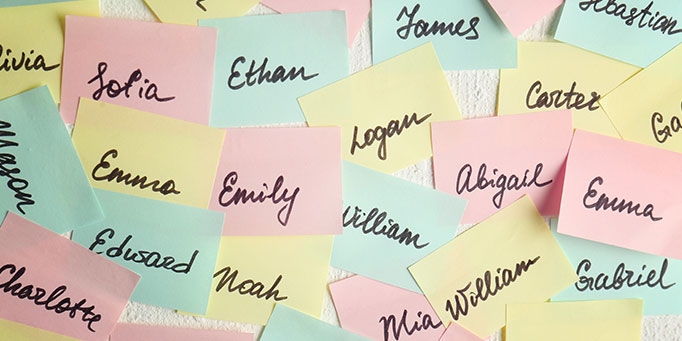 James
Sebastian
Olivia
Sofia
Ethan
Carter
Logan
Mason
Emma
Emily
Abigail
Emma
William
Edward
Noah
William
Gabriel
Charlotte
Mia